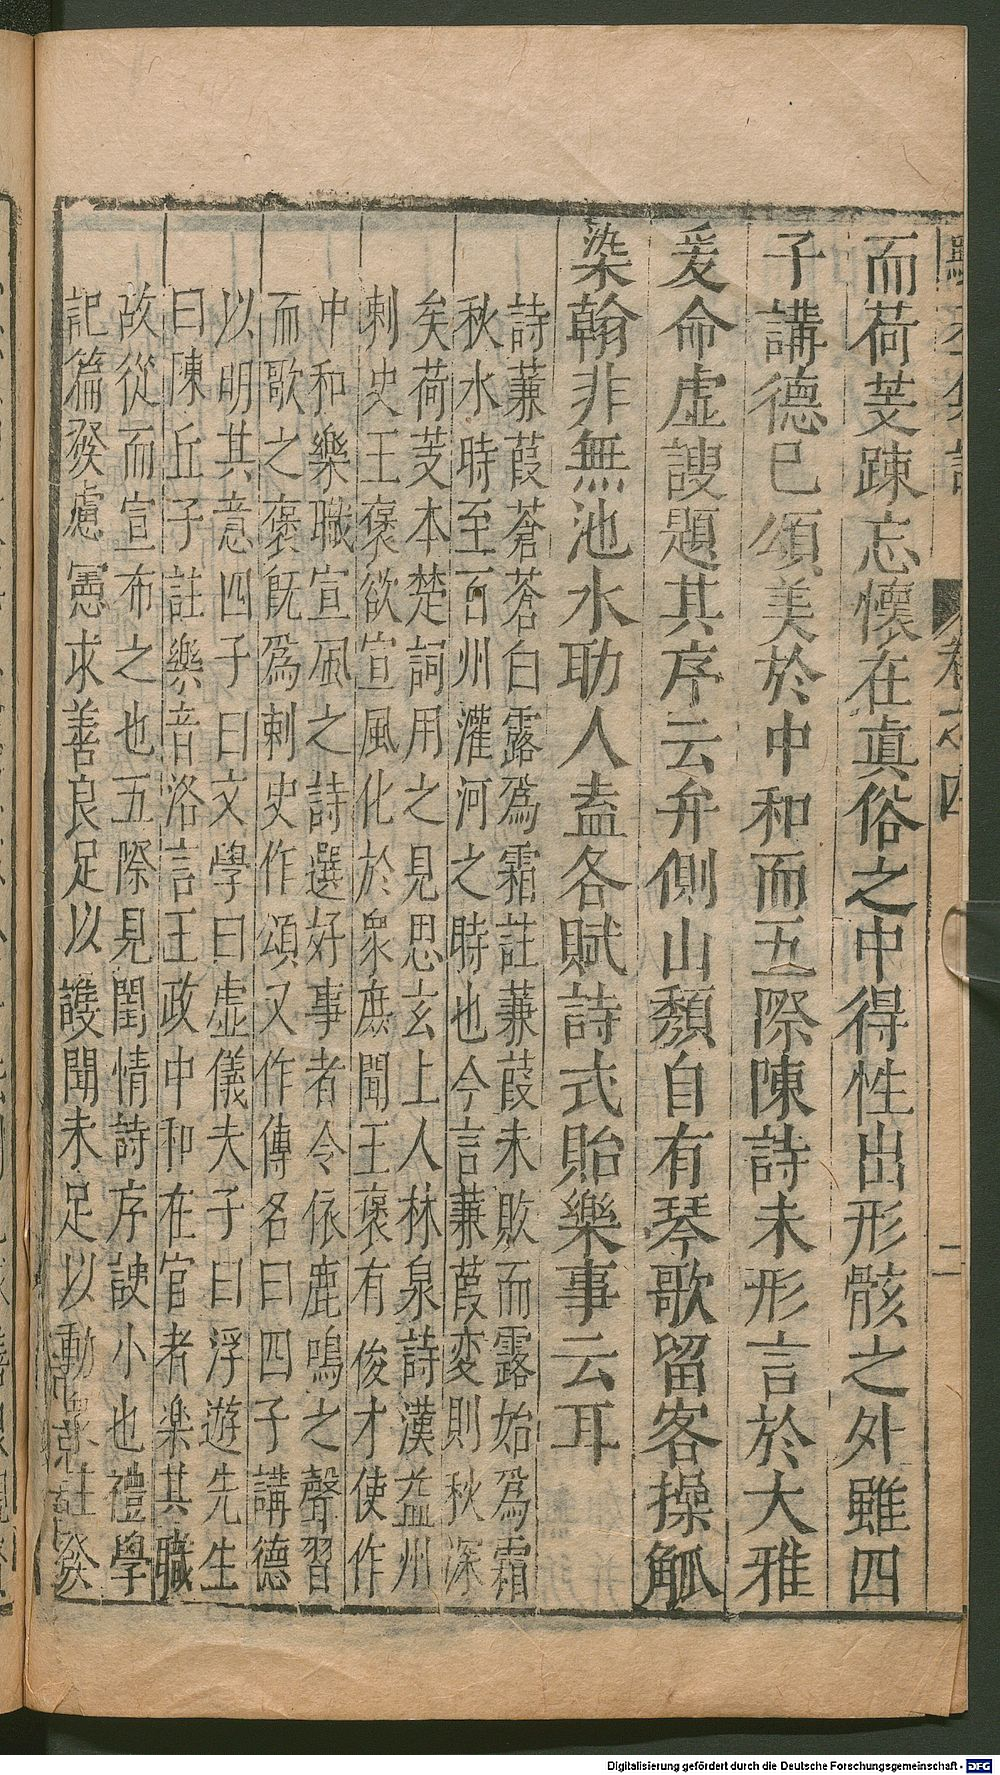 而荷芰踈忘懷在真俗之中得性出形骸之外雖四
子講德已頌美於中和而五際陳詩未形言於大雅
爰命虛謏題其序云弁側山頹自有琴歌留客操觚
染翰非無池水助人盍各賦詩式貽樂事云耳
詩蒹葭蒼蒼白露爲霜註蒹葭未敗而露始爲霜
秋水時至百州灌河之時也今言蒹葭変則秋深
矣荷芰本楚詞用之見思玄上人林泉詩漢益州
刺史王褒欲宣風化於衆庶聞王褒有俊才使作
中和樂職宣風之詩選好事者令依鹿鳴之聲習
而歌之褒旣爲刺史作頌又作傳名曰四子講德
以明其意四子曰文學曰虛儀夫子曰浮遊先生
曰陳丘子註樂音洛言王政中和在官者楽其職
故從而宣布之也五際見閨情詩序謏小也禮學
記篇發慮憲求善良足以謏聞未足以動衆註發
卷之四
二
Digitalisierung gefördert durch die Deutsche Forschungsgemeinschaft - DFG